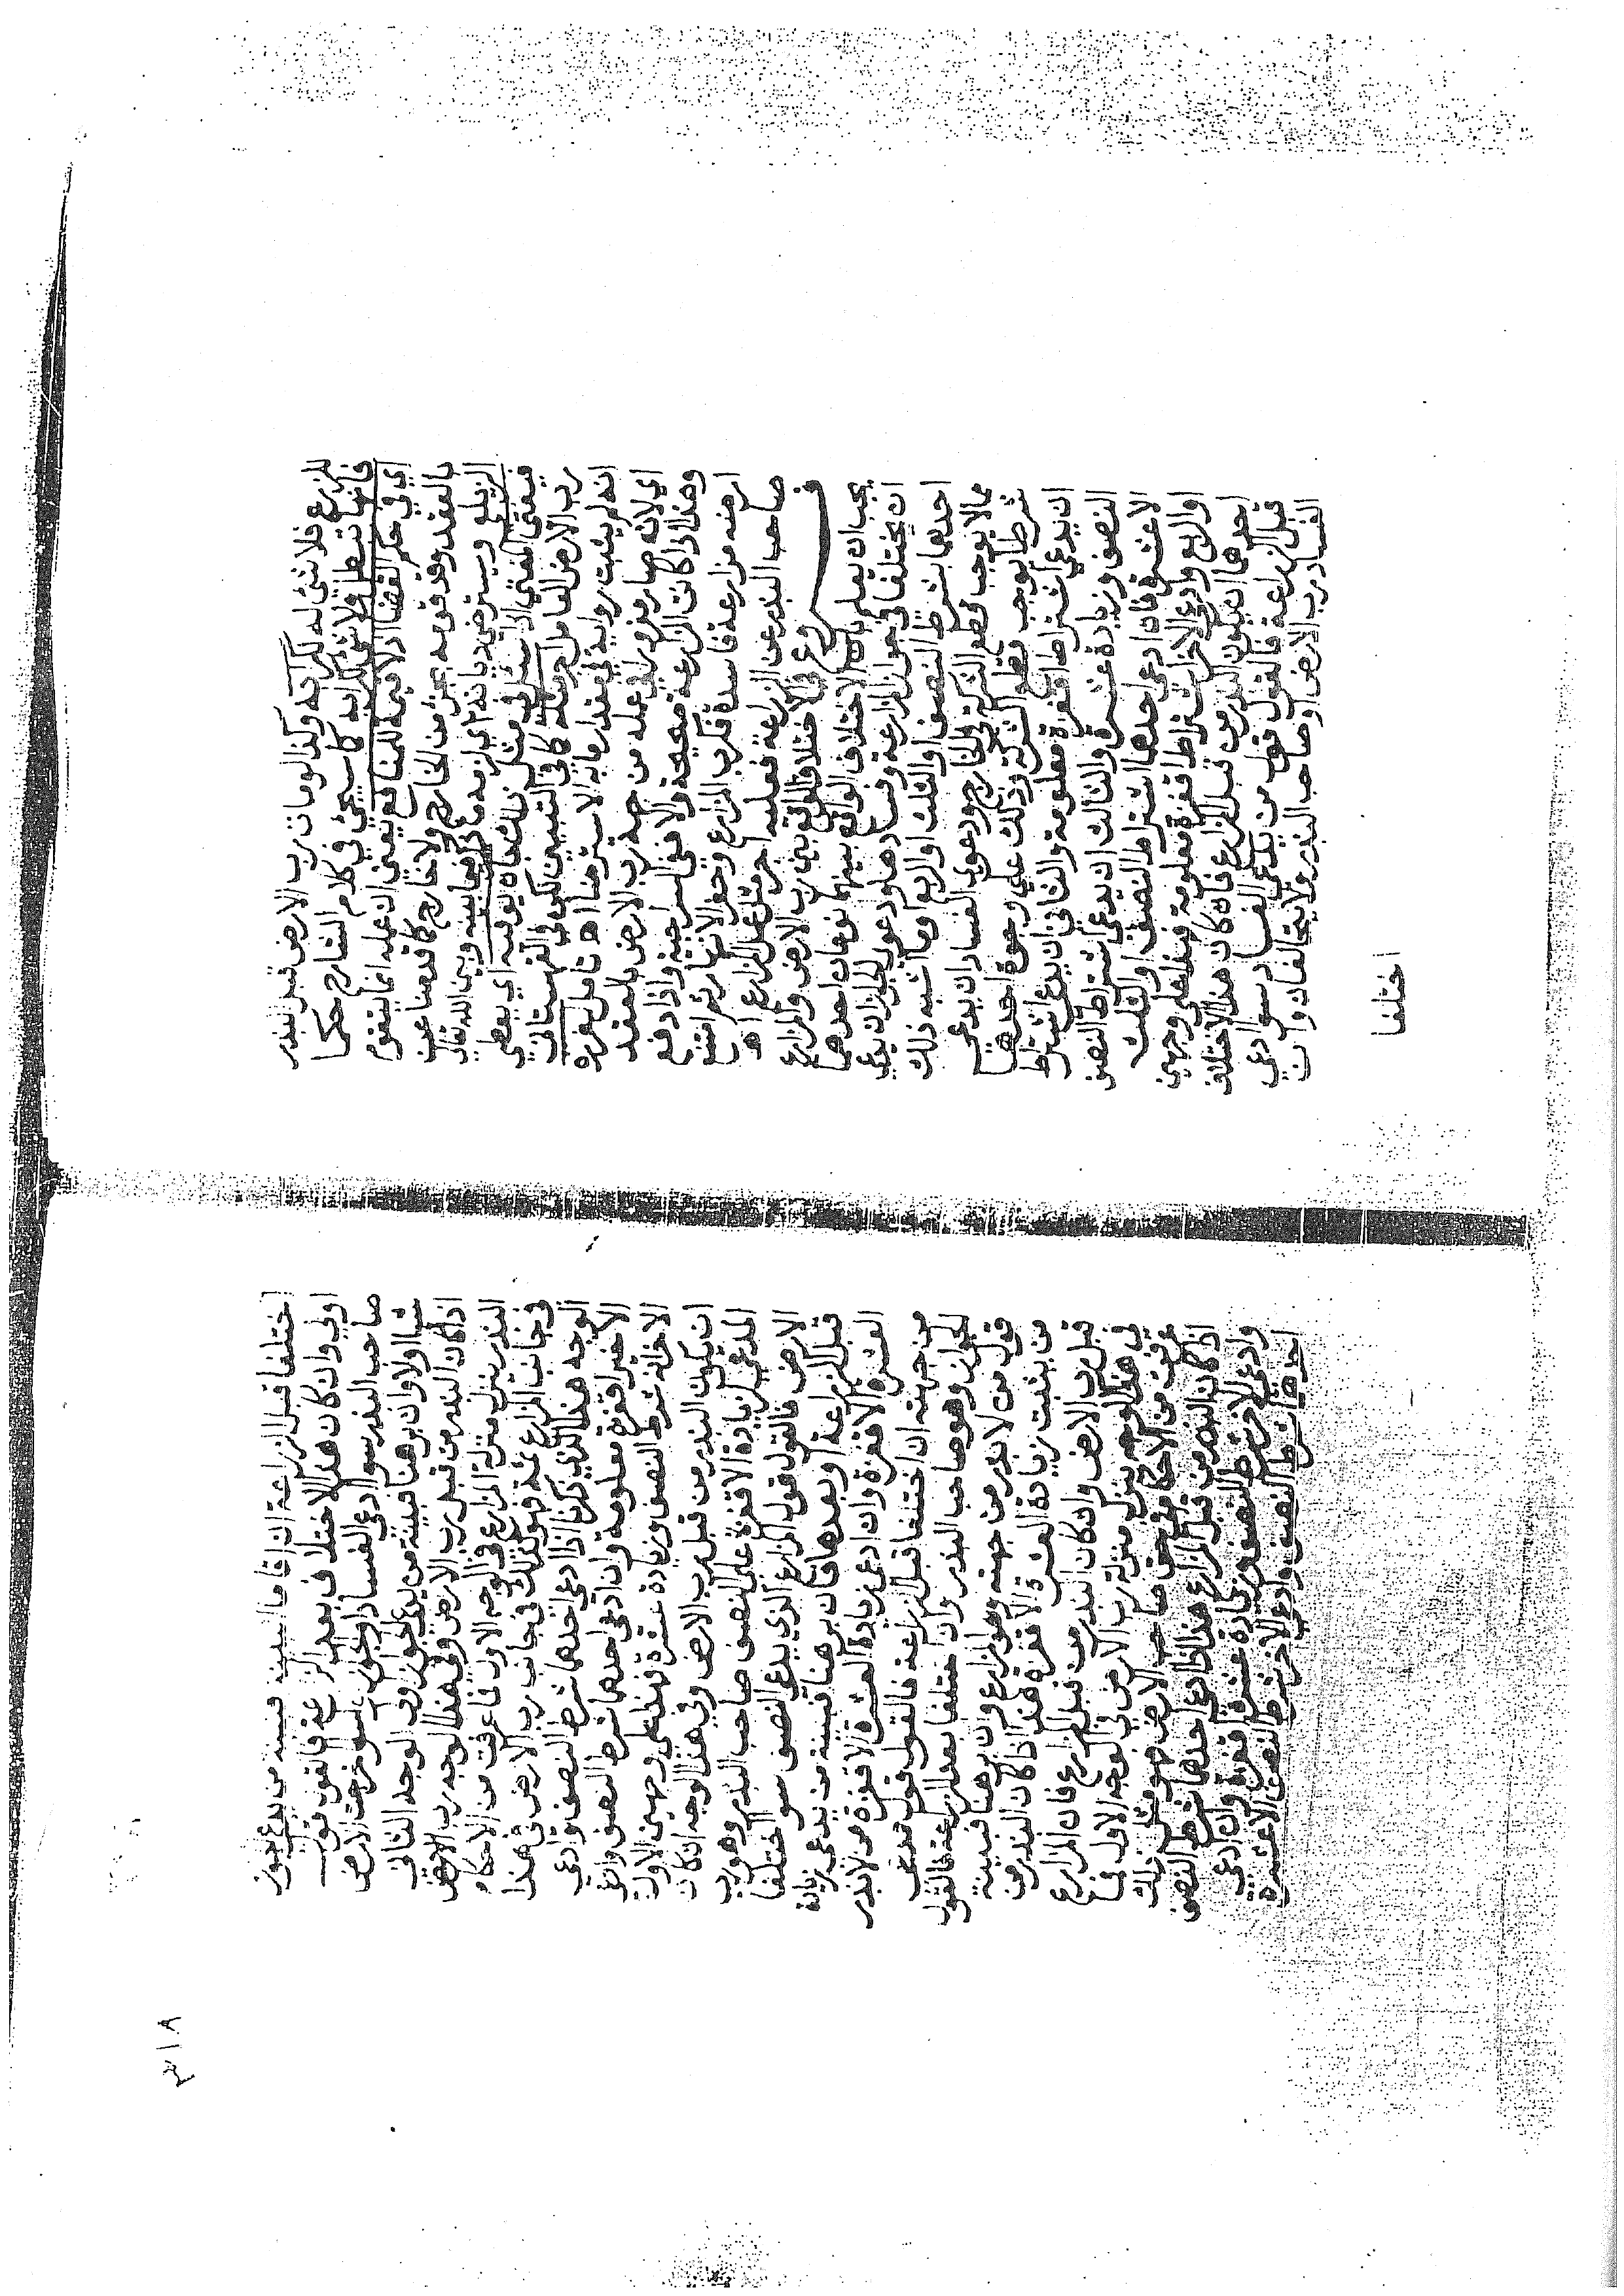 للزرع فلا شئ له لكرابه وكذا لو مات رب الارض قبل البذر
فانها تبطل ولا شئ لكرابه كما سيجئ في كلام الشارح حكما
اي في حكم القضا اذ لا قيمة للمنافع يعني ان عمله انما يتقوم
بالعقد وقد قومه بجزء من الخارج ولا خارج كما قدمناه عن
الزيلعي ويسترضي ديانة اي لزمه ما بينه وبين الله تعالى
فيفتي المفتي اذا سئل في مثل ذلك بان يوفيه اي يعطي
رب الارض العامل اجر مثله كما في التبيين لكن في القهستاني
انه لم يثبت رواية في مقدر ما به الاسترضا اه تامل لغرره
اي لانه صار مغرورا في عمله من جهة رب الارض بالعقد
وهذا اذا كانت المزارعة صحيحة والا ففي السراجية واذا دفع
ارضه مزارعة فاسدة فكرب المزارع وحفر الانهار ثم امتنع
صاحب البذر عن الزراعة فعليه اجر مثل عمل المزارع اه
فروع في الاختلاف الواقع بين رب الارض والمزارع
يجب ان يعلم بان الاختلاف الواقع بينهما نوعان احدهما
ان يختلفا في جواز المزارعة وفسادها ودعوى الجواز ان يدعي
احدهما بشرط النصف او الثلث او الربع وما اشبه ذلك
مما لا يوجب قطع الشركة في الخارج ودعوى الفساد ان يدعي
شرطا يوجب قطع الشركة وذلك على وجوه احدها
ان يدعي اشتراط اقفزة معلومة والثاني ان يدعي اشتراط
النصف وزيادة عشرة والثالث ان يدعي اشتراط النصف
الا عشرة فان ادعى احدهما اشتراط النصف او الثلث
والربع وادعى الاخر اشتراط اقفزة معلومة فهذا على وجهين
احدهما ان يكون البذر من قبل المزارع فان كان هذا الاختلاف
قبل الزراعة فالقول قول من يدعي الفساد سوا ادعى
الفساد رب الارض او صاحب البذر ولا يتحالفان وان
اختلفا
اختلفا قبل الزراعة ان اقاما البينة فبينة من يدعي الجواز
اولى وان كان هذا الاختلاف بعد الزرع فالقول قول
صاحب البذر سوا ادعى الفساد او الجواز سوا خرجت الارض
شيا اولا وان برهنا فبينة من يدعي الجواز اولى الوجه الثاني
اذا كان البذر من قبل رب الارض وفي هذا الوجه رب الارض
البذر ينزل منزلة المزارع في الوجه الاول فما عرفت من الاحكام
في جانب المزارع ثمة فهو كذلك في جانب رب الارض في هذا
الوجه هذا الذي ذكرنا اذا ادعى احدهما شرط النصف وادعى
الاخر اقفزة معلومة وان ادعى احدهما شرط النصف وادعى
الاخر انه شرط النصف وزيادة عشرة فهذا على وجهين الاول
ان يكون البذر من قبل رب الارض وفي هذا الوجه ان كان
المدعي لزيادة الاقفزة على النصف صاحب البذر وهو رب
الارض فالقول قول المزارع الذي يدعي النصف سوا اختلفا
قبل الزراعة او بعدها فان برهنا فبينة من يدعي زيادة
العشرة الاقفزة وان ادعى زيادة العشرة الاقفزة من لا بذر
من جهته ان اختلفا قبل الزراعة فالقول قول مدعي
الجواز وهو صاحب البذر وان اختلفا بعد الزراعة فالقول
قول من لا بذر من جهته وهو المزارع وان برهنا فبينة
من يثبت زيادة العشرة الاقفزة هذا اذا كان البذر من
قبل رب الارض وان كان البذر من قبل المزارع فان المزارع
في هذا الوجه ينزل منزلة رب الارض في الوجه الاول فما
عرفت من الاحكام في حق صاحب الارض فهو مثل ذلك
اذا كان البذر من قبل المزارع هذا اذا ادعى احدهما شرط النصف
وادعى الاخر شرط النصف وزيادة عشرة اقفزة وان ادعى
احدهما شرط النصف وادعى الاخر شرط النصف الا عشرة
٣١٨